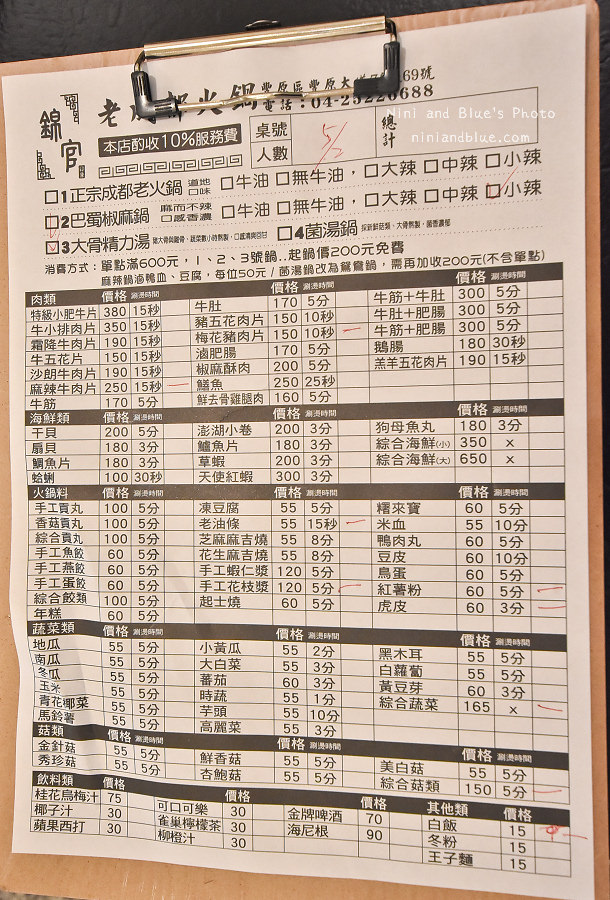 錦官
老成都火鍋 豐原區豐原大道 69號
電話：04-25226688
本店酌收10%服務費
桌號 5/2 總計
人數
Nini and Blue's Photo
niniandblue.com
□1正宗成都老火鍋 道地口味 □牛油 □無牛油，□大辣 □中辣 □小辣
□2巴蜀椒麻鍋 麻而不辣 口感香濃 □牛油 □無牛油，□大辣 □中辣 □小辣
□3大骨精力湯 □4菌湯鍋
消費方式：單點滿600元，1、2、3號鍋..起鍋價200元免費
麻辣鍋滷鴨血、豆腐，每位50元/菌湯鍋改為鴛鴦鍋，需再加收200元(不含單點)
肉類 價格 涮燙時間 價格 涮燙時間 價格 涮燙時間
特級小肥牛片 380 15秒 牛肚 170 5分 牛筋+牛肚 300 5分
牛小排肉片 350 15秒 豬五花肉片 150 10秒 牛肚+肥腸 300 5分
霜降牛肉片 190 15秒 梅花豬肉片 150 10秒 牛筋+肥腸 300 5分
牛五花片 150 15秒 滷肥腸 170 5分 鵝腸 180 30秒
沙朗牛肉片 190 15秒 椒麻酥肉 200 5分 羔羊五花肉片 190 15秒
麻辣牛肉片 250 15秒 鱔魚 250 25秒
牛筋 170 5分 鮮去骨雞腿肉 160 5分
海鮮類 價格 涮燙時間 價格 涮燙時間 價格 涮燙時間
干貝 200 5分 澎湖小卷 200 3分 狗母魚丸 180 3分
扇貝 180 3分 鱸魚片 180 3分 綜合海鮮(小) 350 ×
鯛魚片 180 3分 草蝦 200 3分 綜合海鮮(大) 650 ×
蛤蜊 100 30秒 天使紅蝦 300 3分
火鍋料 價格 涮燙時間 價格 涮燙時間 價格 涮燙時間
手工貢丸 100 5分 凍豆腐 55 5分 糯來寶 60 5分
香菇貢丸 100 5分 老油條 55 15秒 米血 55 10分
綜合貢丸 100 5分 芝麻麻吉燒 55 8分 鴨肉丸 60 5分
手工魚餃 60 5分 花生麻吉燒 55 8分 豆皮 60 10分
手工燕餃 60 5分 手工蝦仁漿 120 5分 鳥蛋 60 5分
手工蛋餃 60 5分 手工花枝漿 120 5分 紅薯粉 60 5分
綜合餃類 100 5分 起士燒 60 5分 虎皮 60 3分
年糕 60 5分
蔬菜類 價格 涮燙時間 價格 涮燙時間 價格 涮燙時間
地瓜 55 5分 小黃瓜 55 2分 黑木耳 55 5分
南瓜 55 5分 大白菜 55 3分 白蘿蔔 55 5分
冬瓜 55 5分 蕃茄 60 3分 黃豆芽 60 3分
玉米 55 5分 時蔬 55 1分 綜合蔬菜 165 ×
青花椰菜 55 5分 芋頭 55 10分
馬鈴薯 55 5分 高麗菜 55 3分
菇類 價格 涮燙時間 價格 涮燙時間 價格 涮燙時間
金針菇 55 5分 鮮香菇 55 5分 美白菇 55 5分
秀珍菇 55 5分 杏鮑菇 55 5分 綜合菇類 150 5分
飲料類 價格 價格 價格 其他類 價格
桂花烏梅汁 75 可口可樂 30 金牌啤酒 70 白飯 15
椰子汁 30 雀巢檸檬茶 30 海尼根 90 冬粉 15
蘋果西打 30 柳橙汁 30 王子麵 15